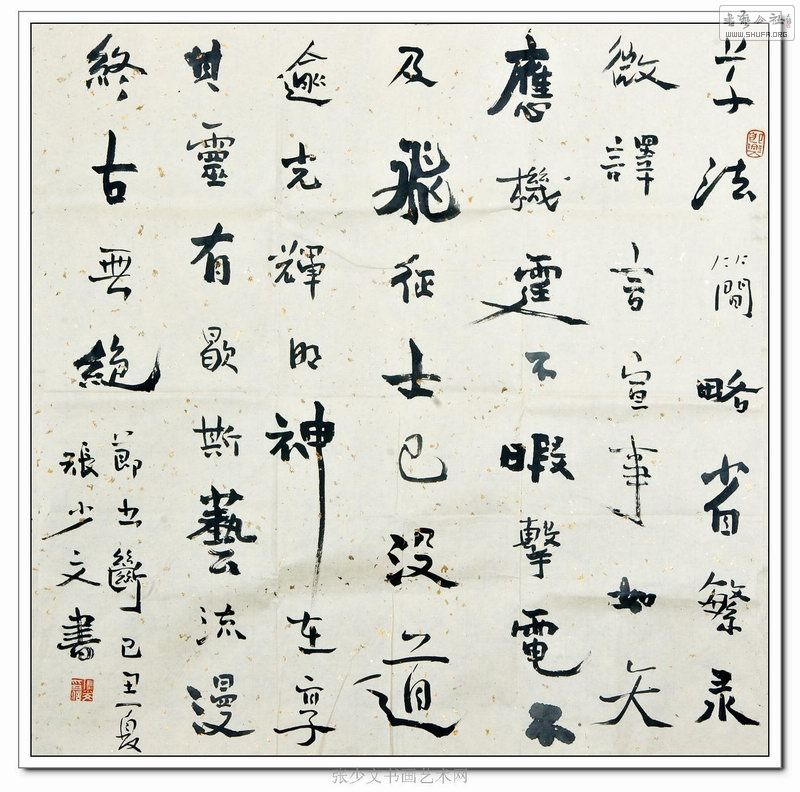 草法簡略省繁录
微譯言宣事如矢
應機霆不暇擊電不
及飛征士已没道
逾光輝明神在享
其靈有歇斯藝流漫
終古無絶
節书斷己丑夏
張少文書
书艺公社
WWW.SHUFA.ORG
张少文书画艺术网